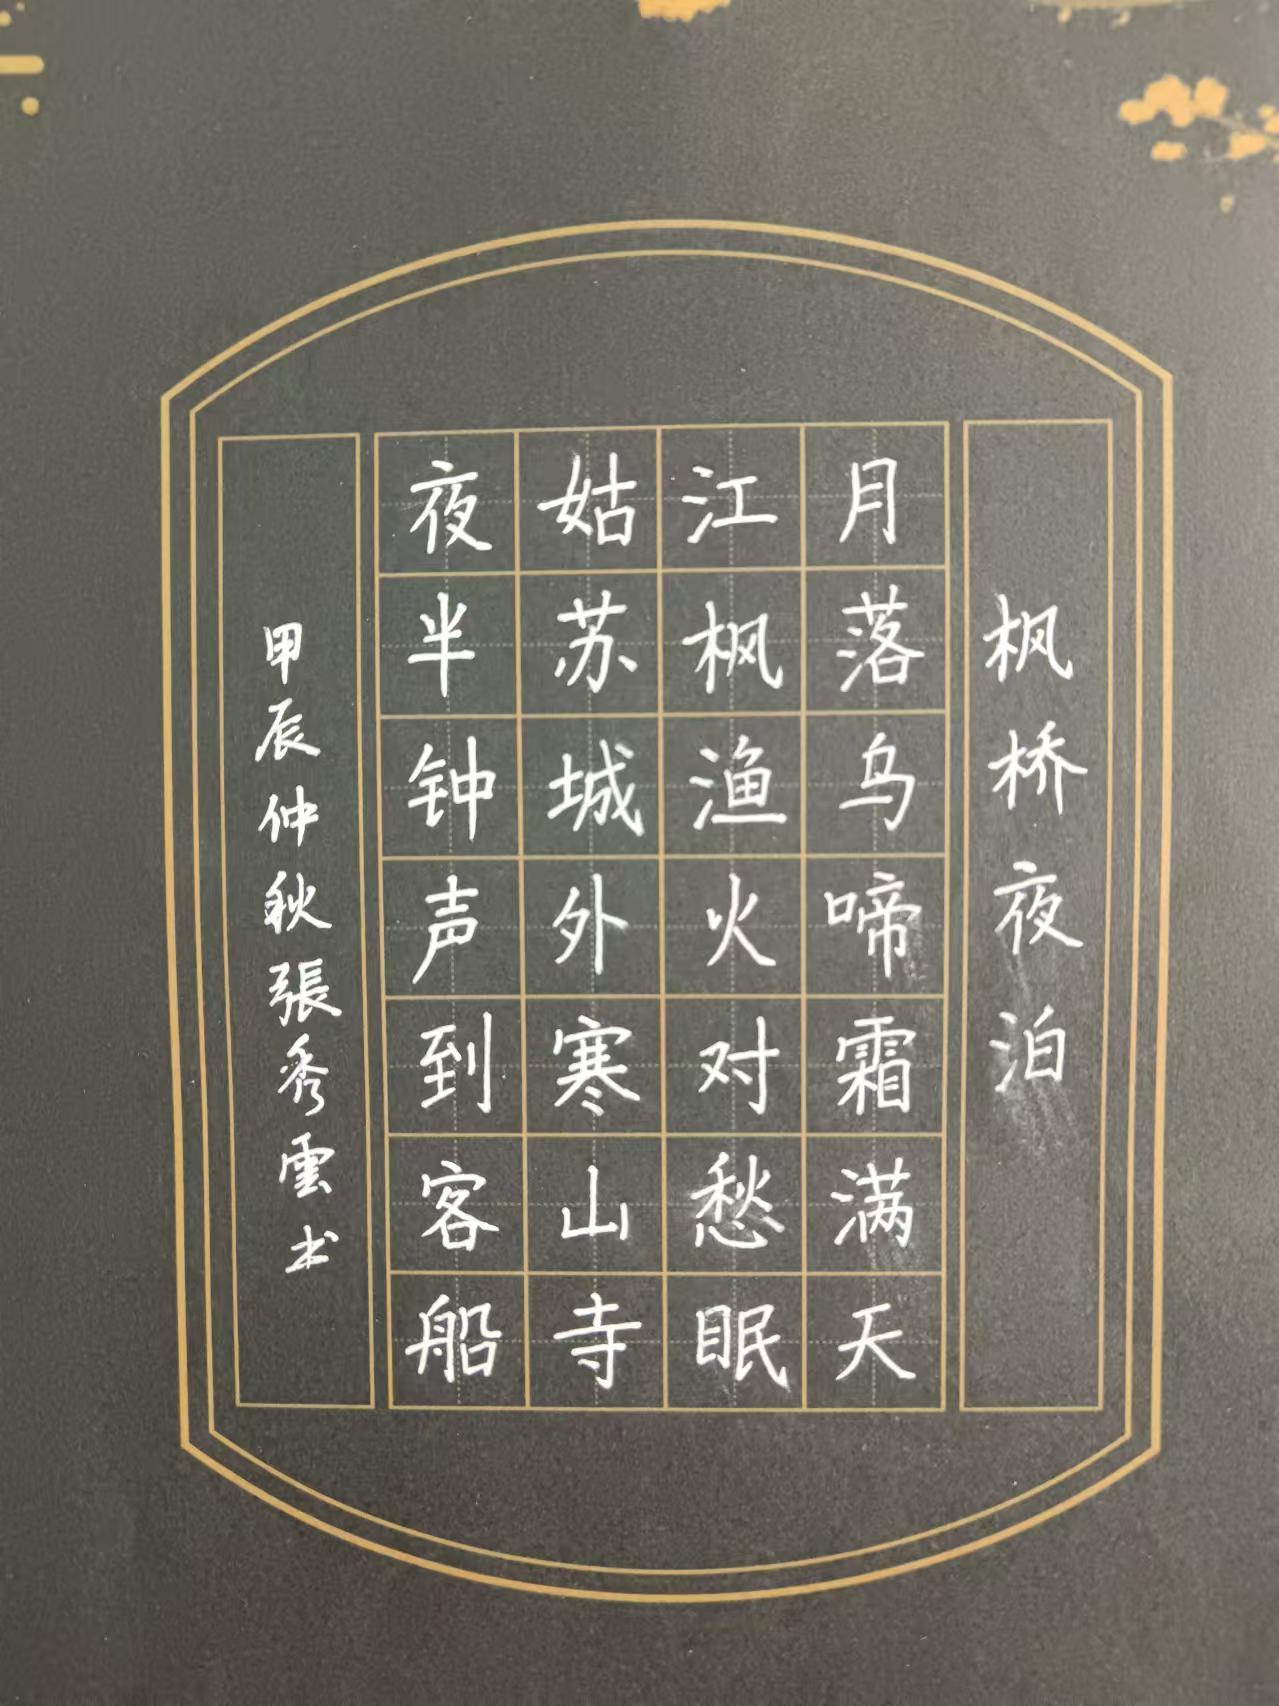 枫桥夜泊
月落乌啼霜满天
江枫渔火对愁眠
姑苏城外寒山寺
夜半钟声到客船
甲辰仲秋張秀雲书